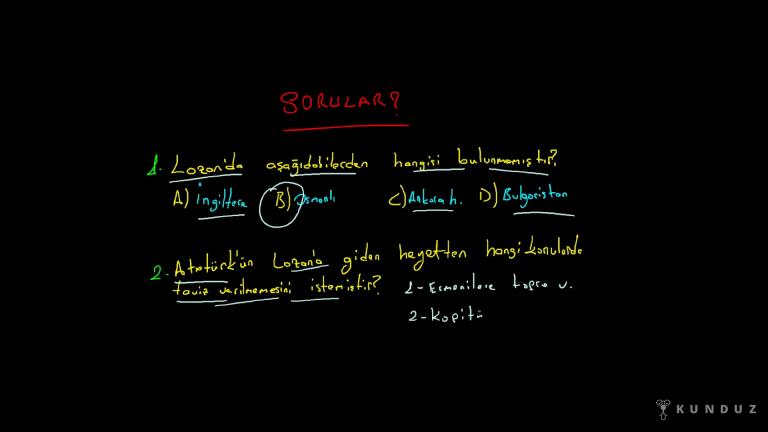 SORULAR?
1. Lozan'da aşağıdakilerden hangisi bulunmamıştır?
A) İngiltere B) Osmanlı C) Ankara h. D) Bulgaristan
2. Atatürk'ün Lozan'a giden heyetten hangi konularda
taviz verilmemesini istemiştir? 1- Ermenilere topra v.
2- Kapitü
KUNDUZ